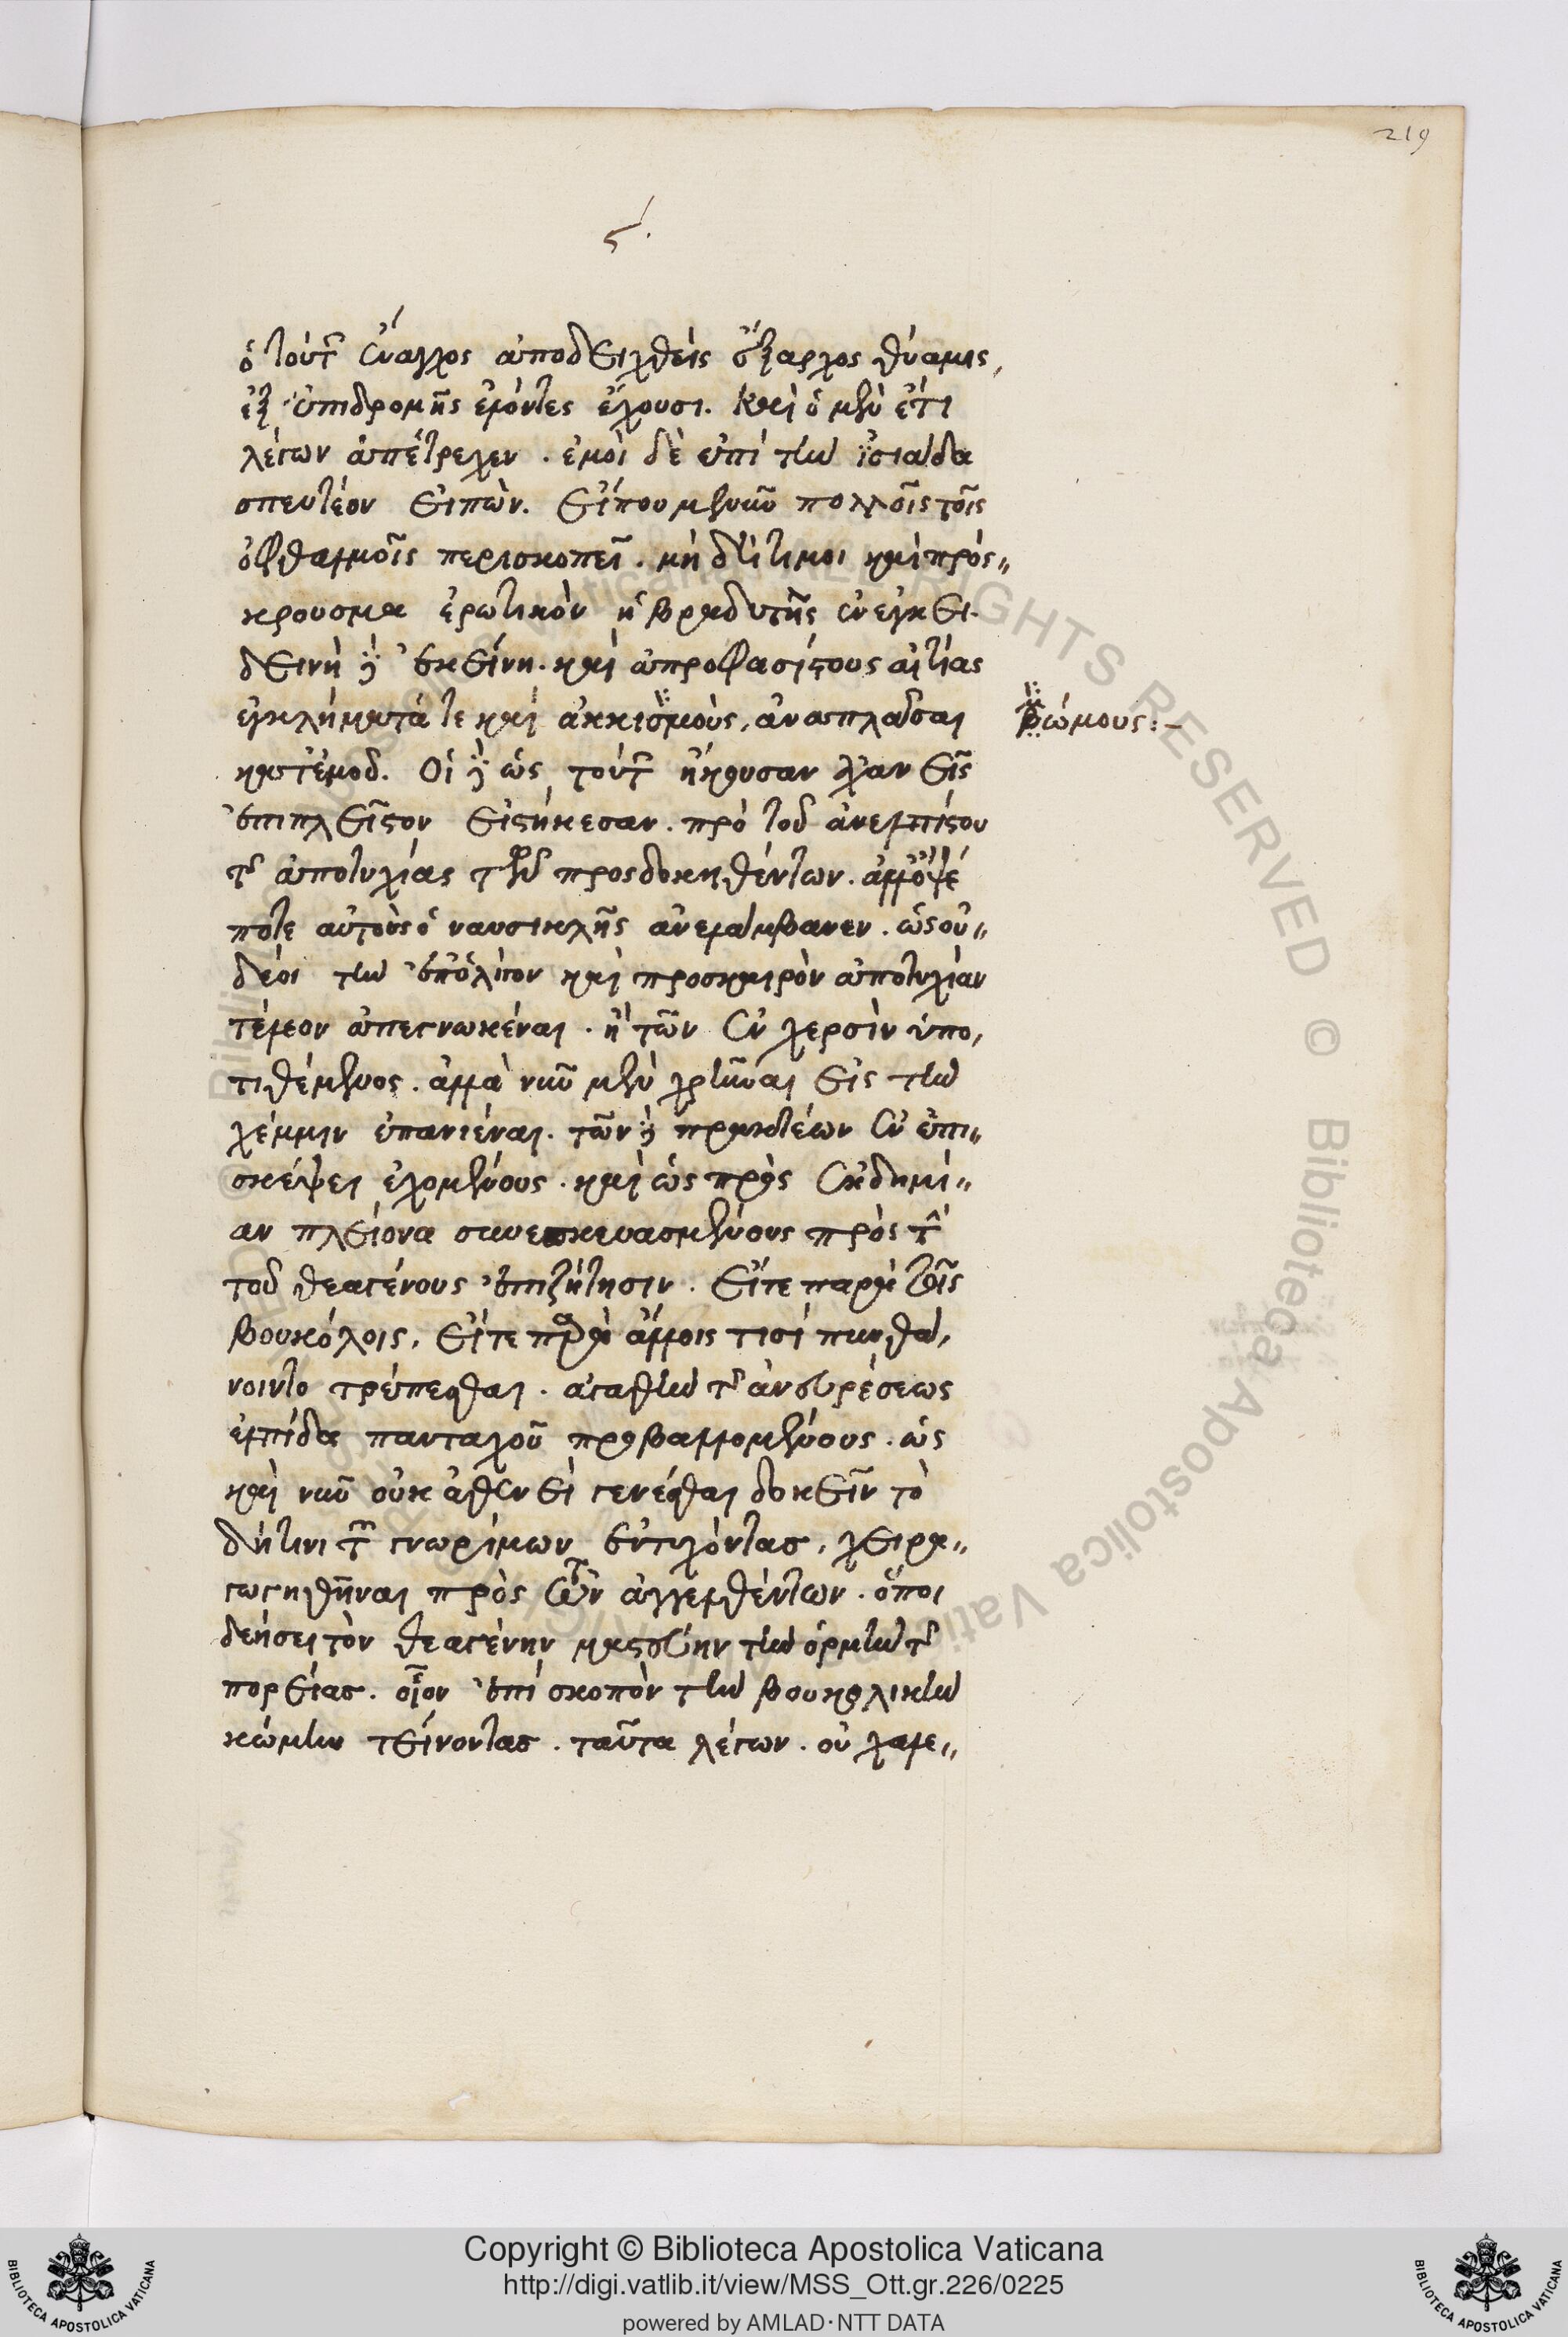 219
ϛ´.
ὁ τούτων ἔναγχος ἀποδειχθεὶς ἔξαρχος θύαμις,
ἐξ ἐπιδρομῆς ἑλόντες ἔχουσι. καὶ ὁ μὲν ἔτι
λέγων ἀπέτρεχεν. ἐμοὶ δὲ ἐπὶ τὴν ἰσιάδα
σπευστέον εἰπών. εἴπου με νῦν πολλοῖς τοῖς
ὀφθαλμοῖς περισκοπεῖ. μὴ δή τι μοι καὶ πρόσ„
κρουσμα ἐρωτικὸν ἡ βραδυτὴς ἐνεγκεῖ.
δεινὴ γὰρ ἐκείνη. καὶ ἀπροφασίστους αἰτίας
ἐγκλήματά τε καὶ ἀκκισμοὺς, ἀναπλάσαι
κατ' ἐμοῦ. Οἱ δὲ ὡς τούτων ἤκουσαν ἀχανεῖς
ἐπιπλεῖστον εἱστήκεσαν. πρὸς τοῦ ἀνελπίστου
τῆς ἀποτυχίας τῶν προσδοκηθέντων. ἀλλ' ὀψέ
ποτε αὐτοὺς ὁ ναυσικλῆς ἀνελάμβανεν. ὡς οὐ„
δέοι τὴν ἐπ' ὀλίγον καὶ προσκαιρὸν ἀποτυχίαν
τέλεον ἀπεγνωκέναι. ἢ τῶν ἐν χερσὶν ὑπο,
τιθέμενος. ἀλλὰ νῦν μὲν χρῆναι εἰς τὴν
χέμμιν ἐπανιέναι. τῶν δὲ πρακτέων ἐν ἐπι„
σκέψει ἐχομένους. καὶ ὡς πρὸς ἐκδημί„
αν πλείονα συνεσκευασμένους πρὸς τὴν
τοῦ θεαγένους ἐπιζήτησιν. εἴτε παρὰ τοῖς
βουκόλοις, εἴτε παρὰ ἄλλοις τισὶ πυνθά,
νοιντο τρέπεσθαι. ἀγαθὴν τῆς ἀνευρέσεως
ἐλπίδα πανταχοῦ προβαλλομένους. ὡς
καὶ νῦν οὐκ ἀθεεὶ γενέσθαι δοκεῖν τὸ
δή τινι τῶν γνωρίμων ἐντυχόντας, χειρα„
γωγηθῆναι πρὸς τῶν ἀγγελθέντων. ὅποι
δεήσει τὸν θεαγένην μαστεύην τὴν ὁρμὴν τῆς
πορείας. οἷον ἐπὶ σκοπὸν τὴν βουκολικὴν
κώμην τείνοντας. ταῦτα λέγων. οὐ χαλε„
βρώμους:–
Copyright © Biblioteca Apostolica Vaticana
http://digi.vatlib.it/view/MSS_Ott.gr.226/0225
powered by AMLAD·NTT DATA